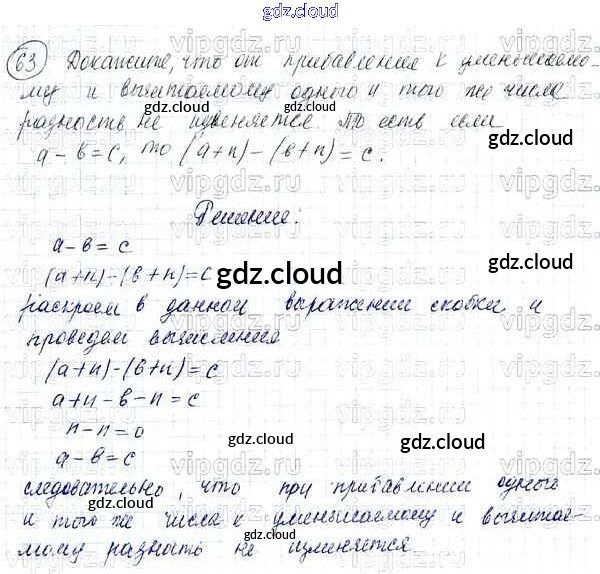 gdz.cloud
63 Докажите, что от прибавления к уменьшаемо-
му и вычитаемому одного и того же числа
разность не изменяется. То есть если
a - в = c, то (a+n) - (в+n) = c.
gdz.cloud
Решение:
a - в = c
(a+n)-(в+n)=c
gdz.cloud
раскроем в данном выражении скобки и
проведем вычисления
(a+n)-(в+n)=c
gdz.cloud
a+n-в-n=c
n-n=0
gdz.cloud
a-в=c
следовательно, что при прибавлении одного
и того же числа к уменьшаемому и вычитае-
мому разность не изменяется.
gdz.cloud